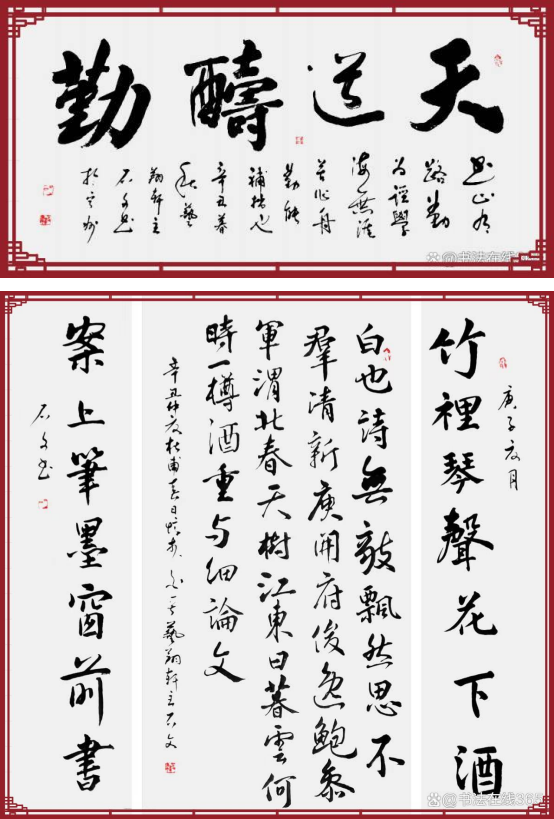 天道醻勤
書山有
路勤
为迳學
海無涯
苦作舟
勤能
補拙也
辛丑暮
秋藝
翔軒主
石文書
书法在线
庚子夏月
竹裡琴聲花下酒
白也詩無敵飄然思不
羣清新庾開府俊逸鮑參
軍渭北春天樹江東日暮雲何
時一樽酒重与細論文
辛丑仲夏杜甫春日憶李白一首藝翔軒主石文
案上筆墨窗前書
石文書
书法在线